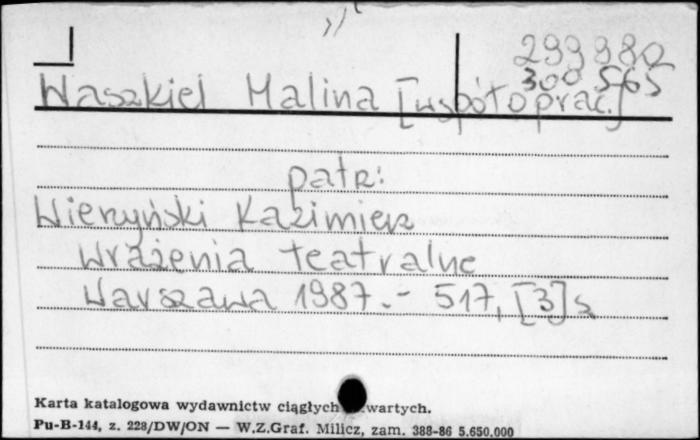 299980
300 565
Waszkiel Halina [współoprac.]
patrz:
Wierzyński Kazimierz
Wrażenia teatralne
Warszawa 1987.- 517, [3] s
Karta katalogowa wydawnictw ciągłych wartych.
Pu-B-144, z. 228/DW/ON — W.Z.Graf. Milicz, zam. 388-86 5.650.000